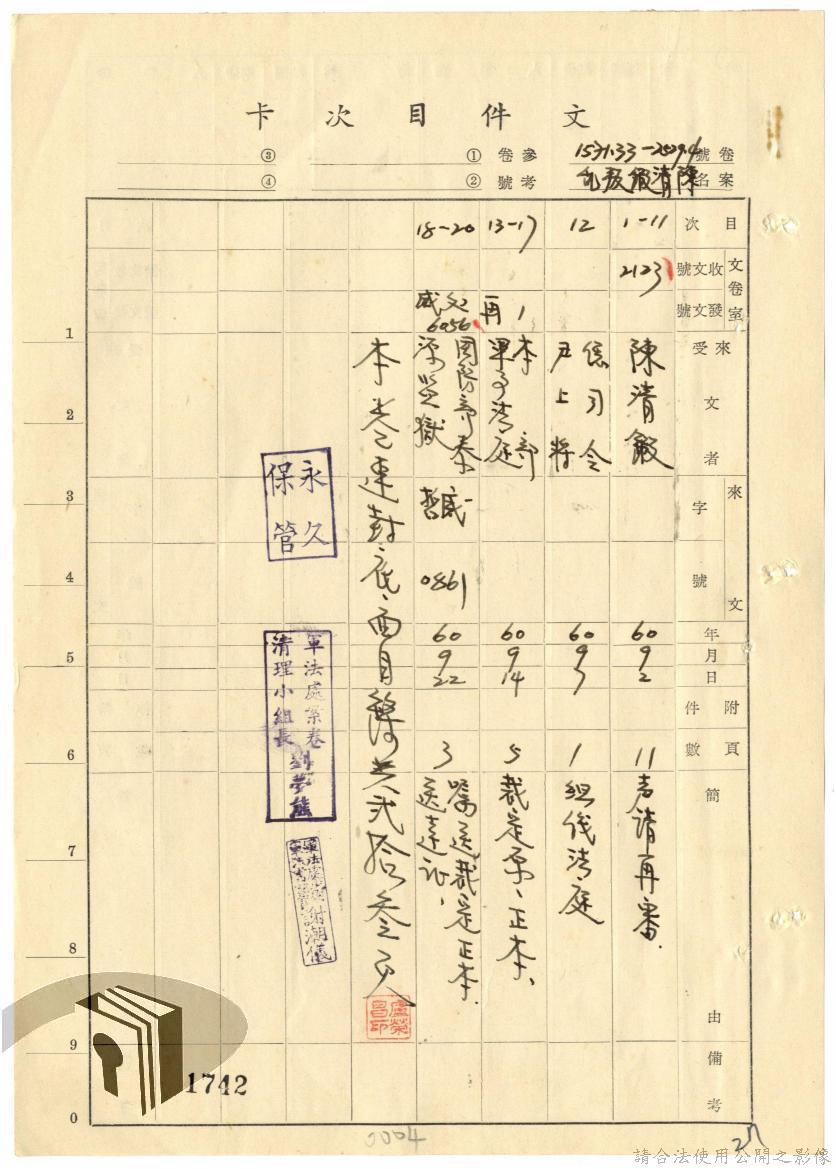 文件目次卡
卷號 1531.33-2029.4
案名 陳清敏
參考卷號 ① ② ③ ④
目次
文卷室 收文號 發文號
來受文者
來文字號
年月日
附件頁數
簡由
備考
1-11
2123
陳清敏
60 9 2
11
聲請再審.
12
尹上將
60 9 7
1
組織法庭
13-17
再1
本部
60 9 14
5
裁定原、正本、
18-20
6056
國防部泰源監獄
0861
60 9 22
3
囑送裁定正本.
送達証,
本卷連封底、面目錄共貳拾叁頁
永久保管
軍法處案卷
清理小組長
劉夢熊
謝潮儀
1
2
3
4
5
6
7
8
9
0
1742
0004
請合法使用公開之影像